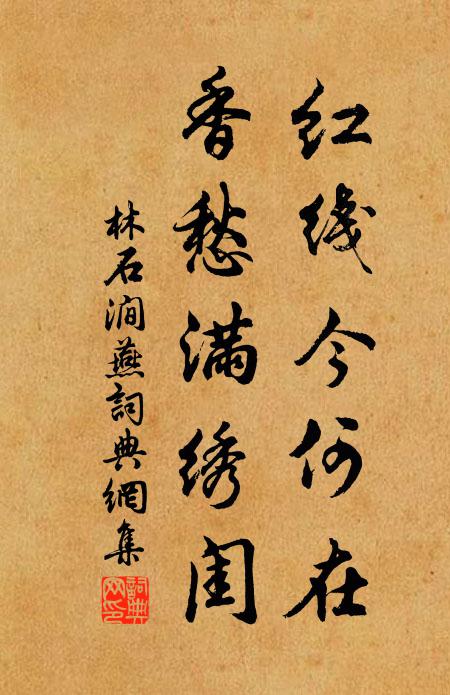 红线今何在
香愁满绣闺
林石涧燕詞典網集
詞典
网印